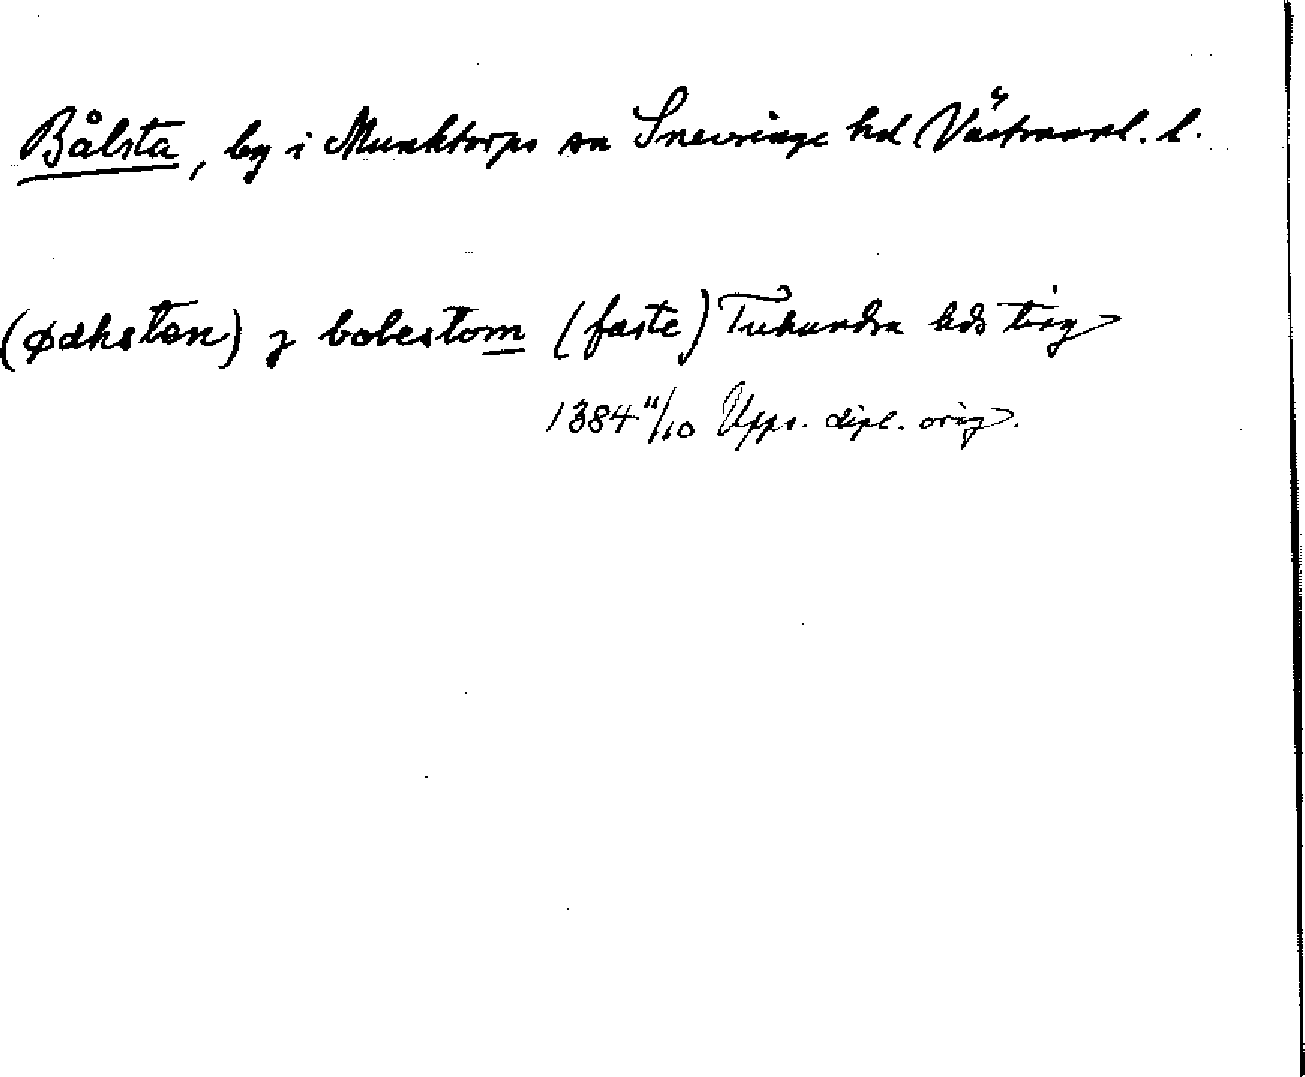 Bålsta, by i Munktorps sn Snevringe hd Västmanl. l.
(ødhsten) j bolestom (faste) Tuhundra hds ting
1384 11/10 Upps. dipl. orig.